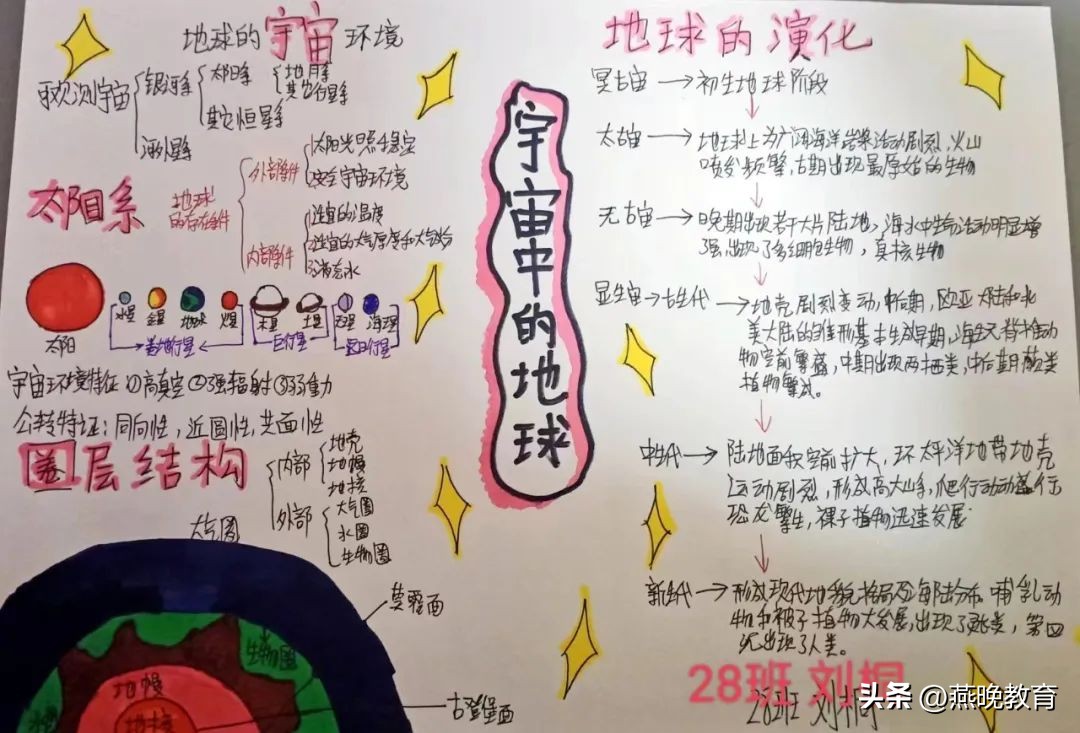 地球的宇宙环境
可观测宇宙
银河系
太阳系
地月系
其它行星系
其它恒星系
河外星系
太阳系
地球的存在条件
外部条件
太阳光照稳定
安全宇宙环境
内部条件
适宜的温度
适宜的大气厚度和大气成分
液态水
太阳
水星
金星
地球
火星
木星
土星
天王星
海王星
类地行星
巨行星
远日行星
宇宙环境特征 ①高真空 ②强辐射 ③弱重力
公转特征:同向性,近圆性,共面性
圈层结构
内部
地壳
地幔
地核
外部
大气圈
水圈
生物圈
大气圈
莫霍面
生物圈
水圈
地幔
地核
古登堡面
宇宙中的地球
地球的演化
冥古宙→初生地球阶段
太古宙→地球上为广阔海洋岩浆活动剧烈,火山
喷发频繁,古期出现最原始的生物
元古宙→晚期出现若干大片陆地,海水中生命活动明显增
强,出现了多细胞生物,真核生物
显生宙→古生代→地壳剧烈变动,中后期,欧亚大陆和北
美大陆的雏形基本生成早期,海生无脊椎动
物空前繁盛,中期出现两栖类,中后期蕨类
植物繁盛。
中生代→陆地面积空前扩大,环太平洋地带地壳
运动剧烈,形成高大山系,爬行动动盛行
恐龙繁生,裸子植物迅速发展
新生代→形成现代地貌格局及海陆分布 哺乳动
物和被子植物大发展,出现了灵长类,第四
纪出现了人类。
28班 刘桐
28班 刘桐
头条@燕晚教育